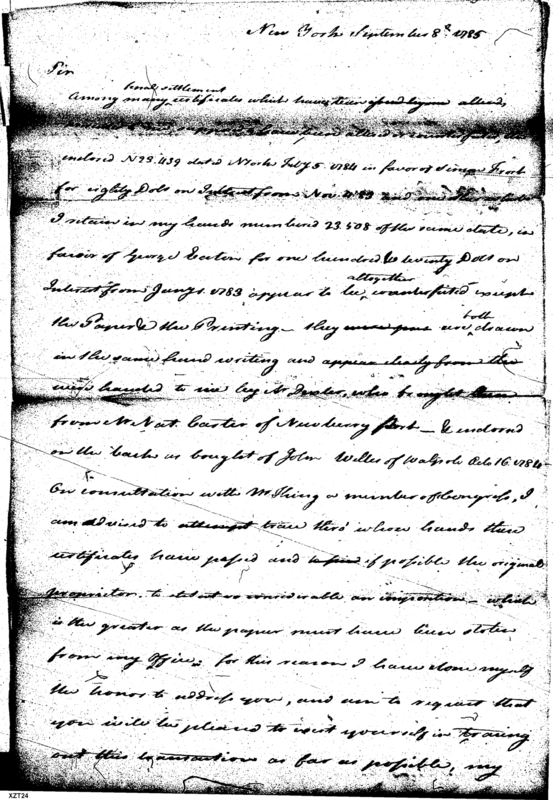 New York September 8th 1785
Sir
final settlement
Among many certificates which have been
altered or counterfeited, the
enclosed N 23.439 dated N York Feby 5 1784 in favor of Simeon Frost
for eighty Dolls on Interest from Nov 4 83 and one other which
I retain in my hands numbered 23.508 of the same date, in
favor of George Eaton for one hundred & twenty Dolls on
altogether
Interest from Jany 1. 1783 appear to be counterfeited except
both
the Paper & the Printing – they are drawn
in the same hand writing and appear clearly from the
were handed to me by Mr , who brought them
from Mr Nat. Carter of Newberry Port – & endorsed
on the back as bought of John Willes of Walpole Octr 16. 1784
On consultation with Mr King a member of Congress, I
am advised to attempt trace thro' whose hands these
certificates have passed and if possible the original
proprietor. to detect so considerable an imposition – which
is the greater as the paper must have been stolen
from my Office; for this reason I have done myself
the honor to address you, and am to request that
you will be pleased to exert yourself in tracing
out this transaction as far as possible, my
XZT24